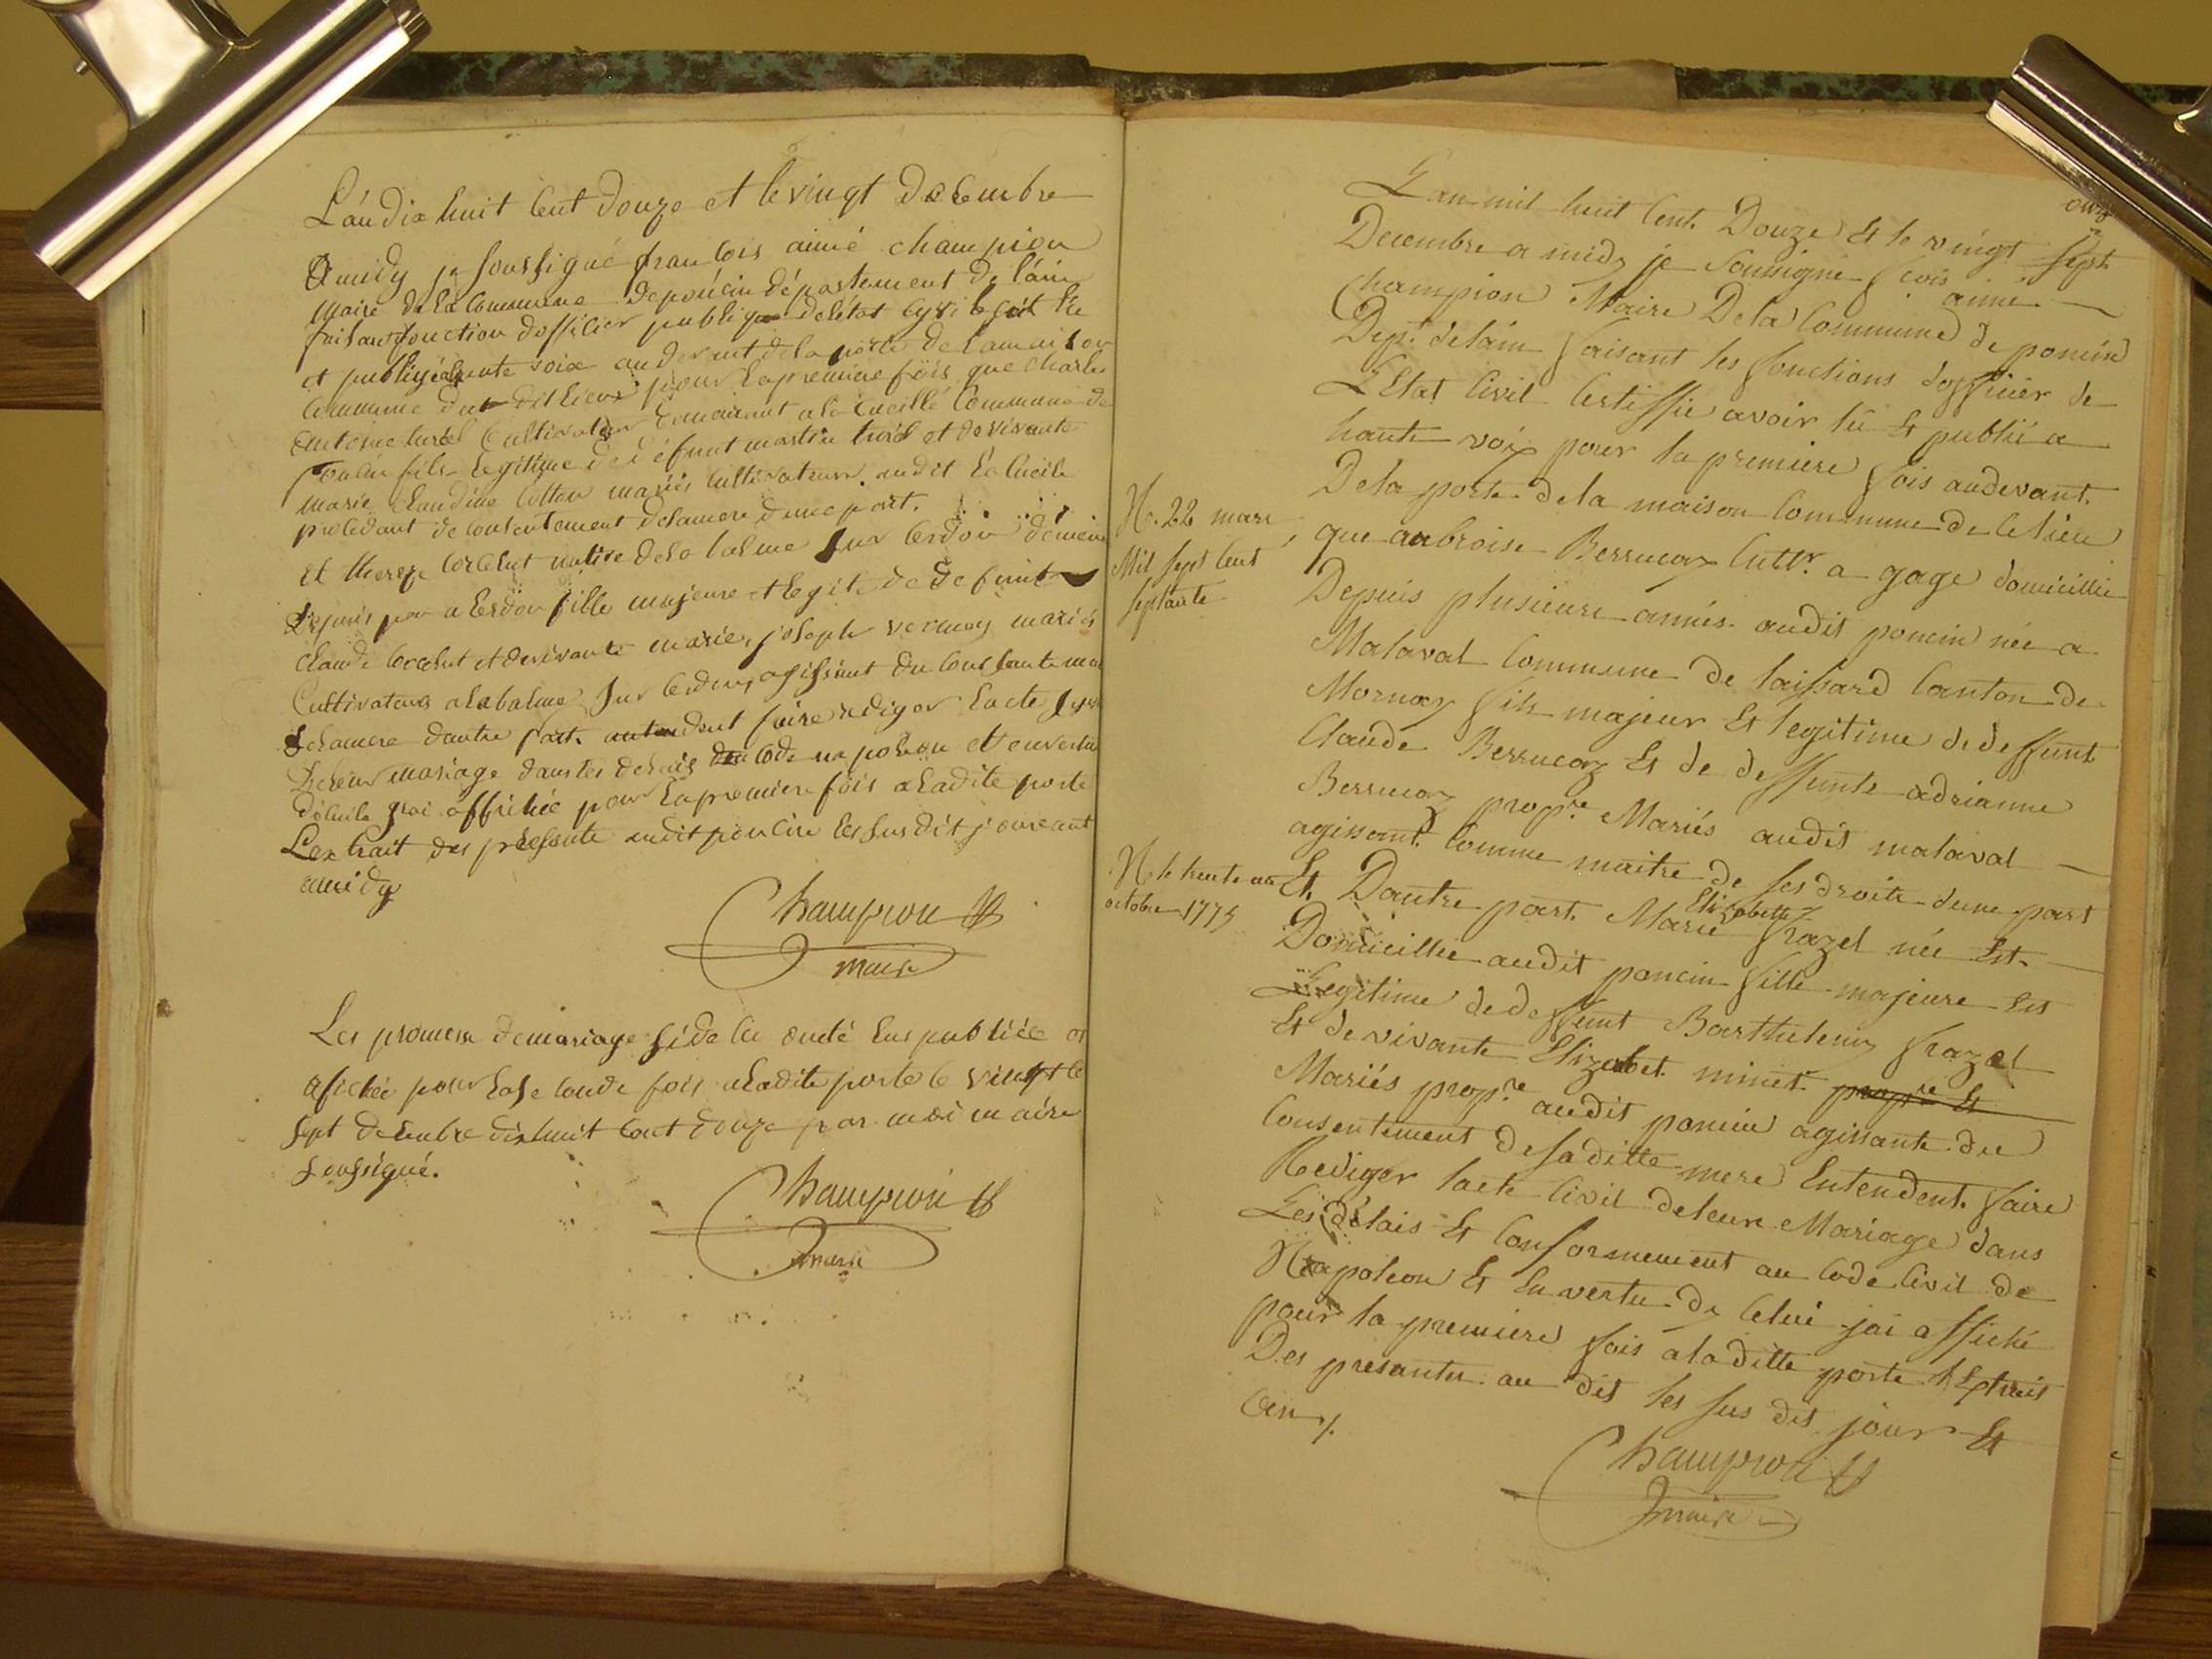 L'an dix huit Cent douze et le vingt decembre
a midy je soussigné francois aimé champion
maire de la Commune de poncin département de l'ain
faisant fonction d'officier publique de l'état civil ai lu
et publié à haute voix au devant de la porte de la maison
Commune dudit lieu pour la premiere fois que Charles
antoine Cultivateur demeurant a la Cueille Commune de
Poncin fils legitime de défunt martin et de vivante
marie Claudine Cotton mariés Cultivateurs audit la Cueille
procédant de Consentement de sa mere d'une part.
et therese Cochet native de la balme sur Cerdon demeurant
depuis peu a Cerdon fille majeure et legit. de defunt
Claude Cochet et de vivante marie joseph vermey mariés
Cultivateurs a la balme sur Cerdon, agissant du Consentement
de sa mere d'autre part. entendent faire rediger l'acte civil
de leur mariage dans les delais du Code napoléon et en vertu
de celui j'ai affichée pour la premiere fois a la dite porte
L'extrait des présente audit poncin les susdits jour et an
a midy
Champion
maire
Les promesse de mariage si de la ont été lus publiée et
afichée pour la seconde fois a la dite porte le vingt
sept decembre dix huit cent douze par moi maire
soussigné.
Champion
maire
onze
L'an mil huit Cent Douze Et le vingt sept
Decembre a midy je Soussigné fcois aimé
Champion Maire De la Commune de poncin
Dept. de l'ain faisant les fonctions d'officier de
L'Etat Civil Certiffie avoir lû Et publié a
haute voix pour la premiere fois audevant
De la porte de la maison Commune de Ce lieu
N. 22 mars
Mil sept Cent
septante
que anbroise Berrucoz Cultr. a gage domicillié
Depuis plusieurs années audit poncin née a
Malaval Commune de laissard Canton de
Mornay fils majeur Et legitime de deffunt
Claude Berrucoz Et de deffunte adrianne
Berrucoz propre. Mariés audit malaval
agissant Comme maitre de ses droits d'une part
N. le trente un
octobre 1775
Et D'autre part. Marie Elizabette frazel née Et
Domicilliée audit poncin fille majeure Et
Legitime de deffunt Barthelemy frazel
Et de vivante Elizabet minet propre Et
Mariés propre. audit poncin agissante du
Consentement de sa ditte mere Entendent faire
Rediger l'acte Civil de leur Mariage dans
Les délais Et Conformement au Code Civil de
Napoleon Et En vertu de Celui j'ai affiché
pour la premiere fois a la ditte porte l'Extrait
Des presantes au dit les sus dit jour Et
an
Champion
maire